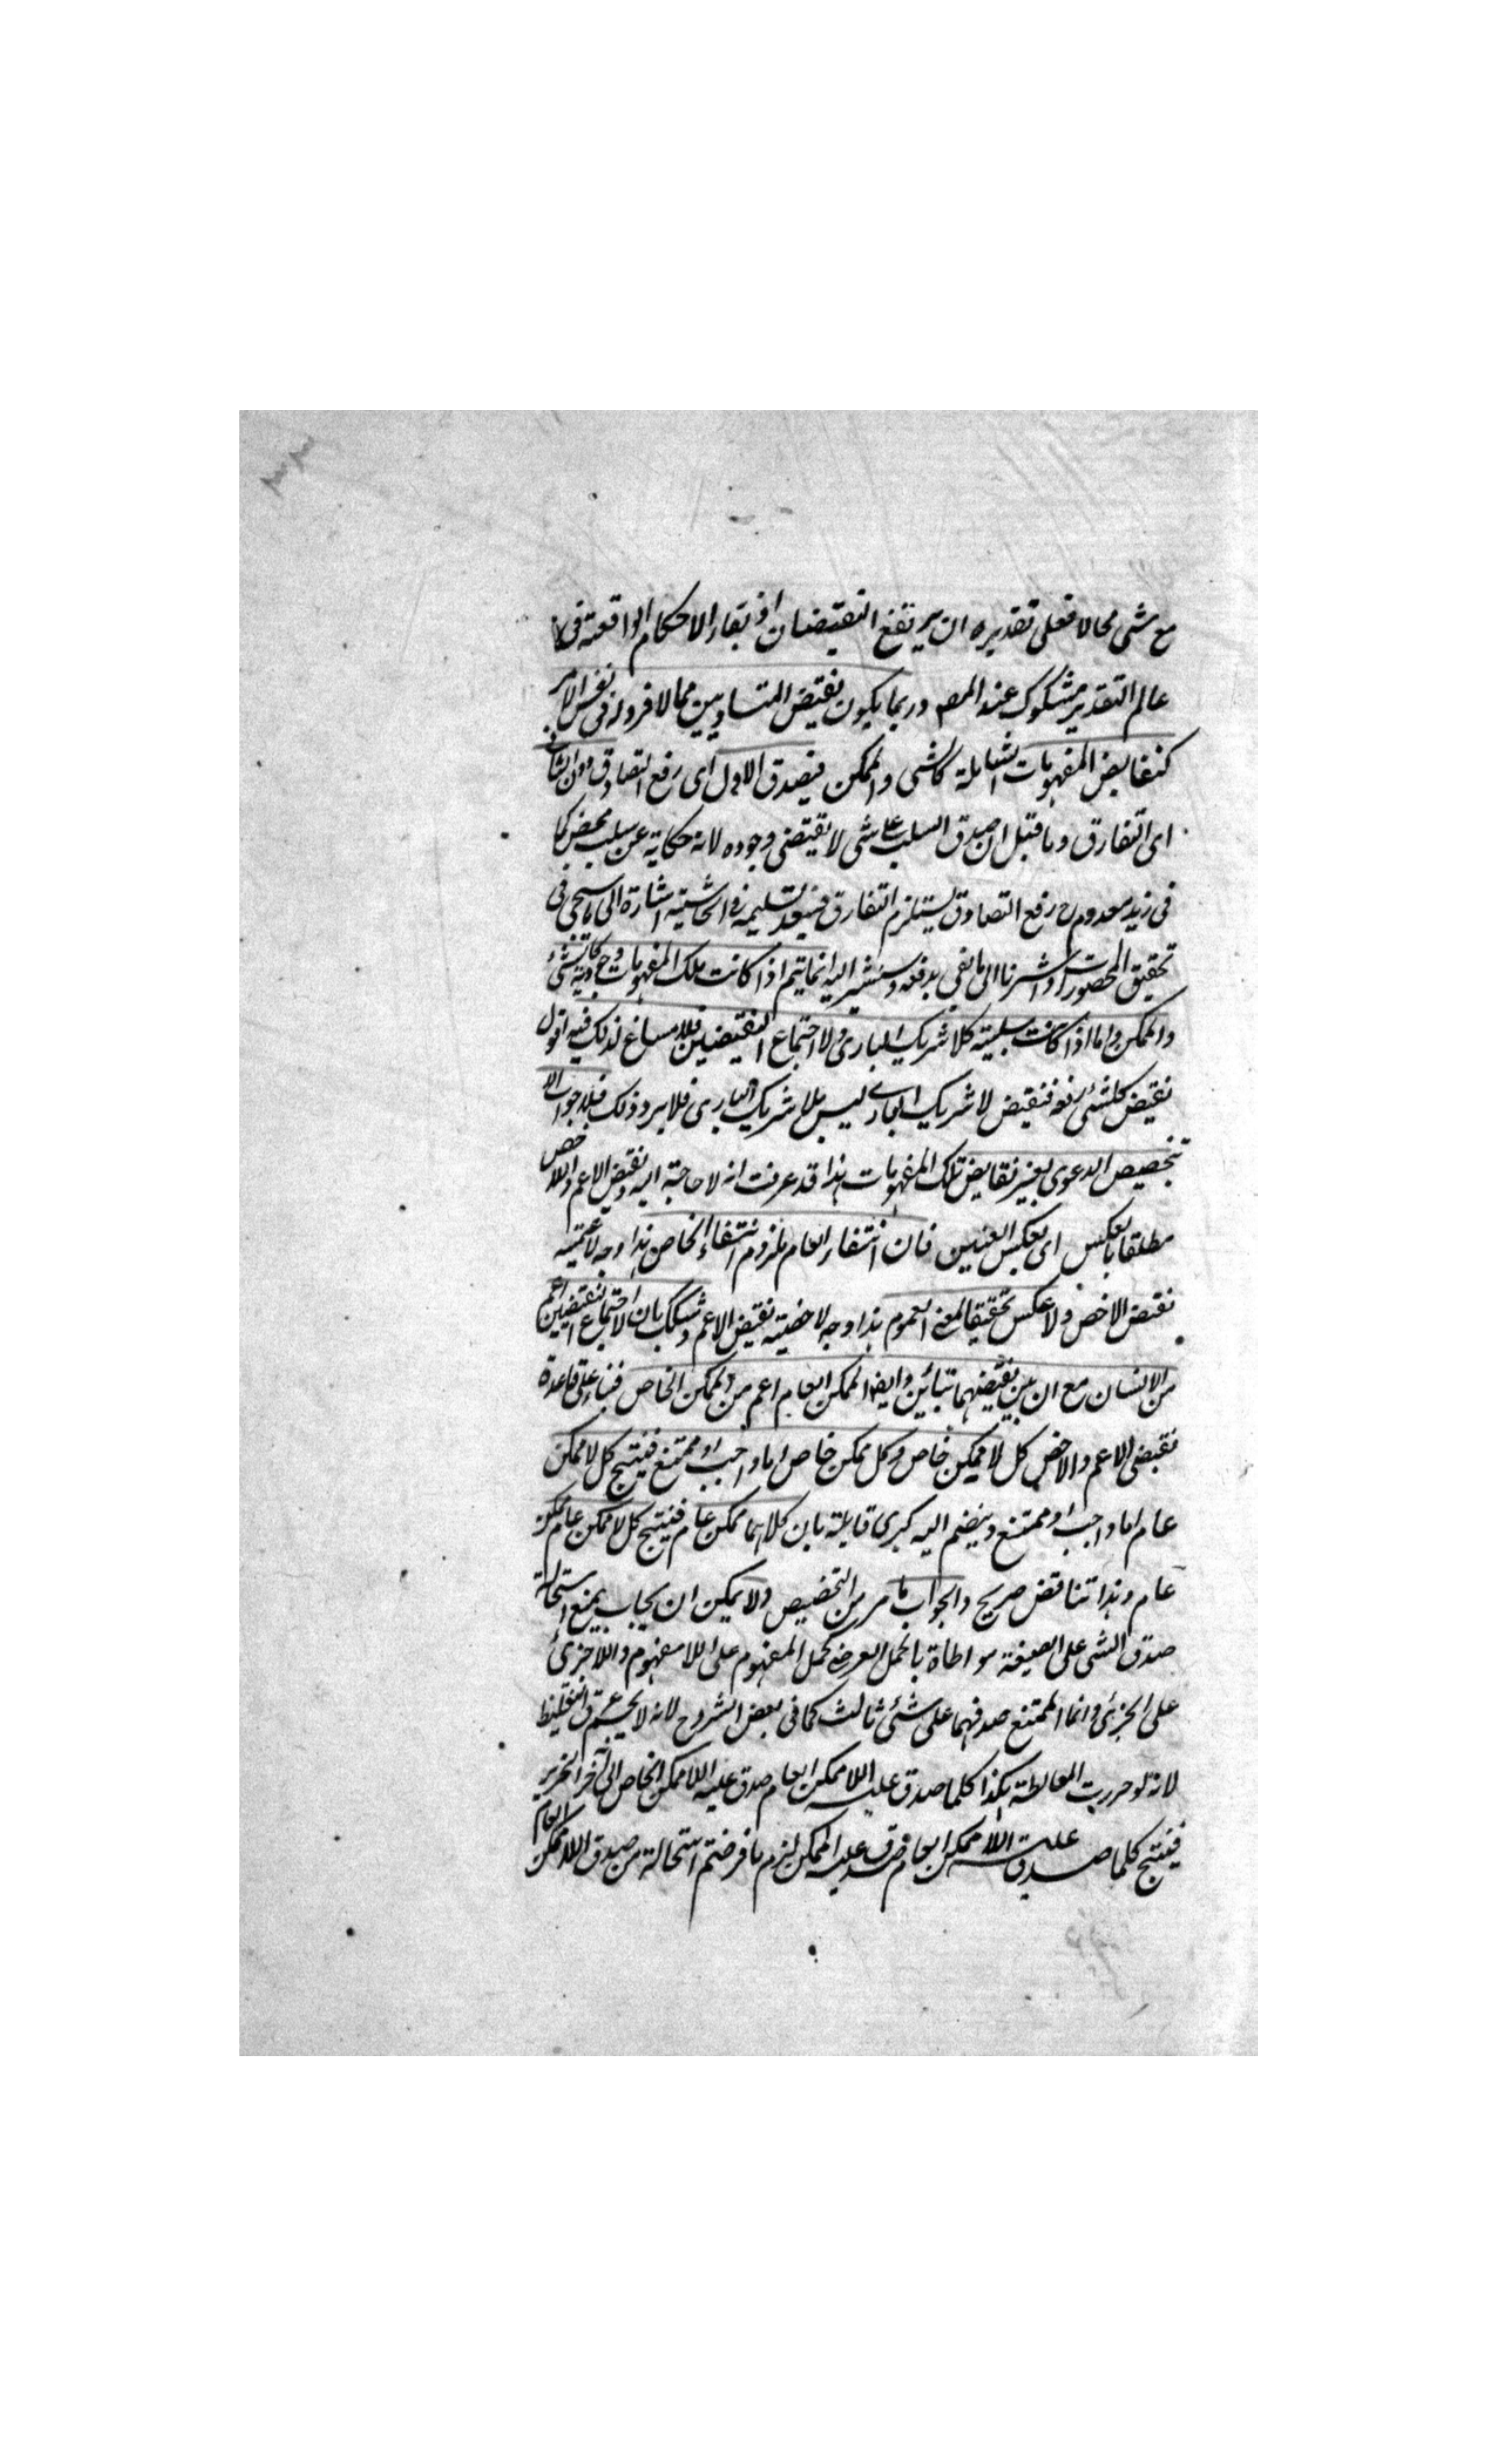 مع شى محالا فعلى تقديره ان يرتفع النقيضان اذ بقاء الاحكام الواقعة فى
عالم التقدير مشكوك عند المصـ وربما يكون نقيض المتساويين مما لا فرد له فى نفس الامر
كنقايض المفهومات الشاملة كالشى والممكن فيصدق الاول اى رفع التصادق دون الثانى
اى التفارق وما قيل ان صدق السلب على شى لا يقتضى وجوده لانه حكاية عن سلب محض كما
فى زيد معدوم ح رفع التصادق يستلزم التفارق فبعد تسليمه فى الحاشية اشارة الى ما سيجى فى
تحقيق المحصورات واشرنا الى ما يفى بدفعه وسنشير اليه انما يتم اذا كانت تلك المفهومات وجودية كالشئ
والممكن واما اذا كانت سلبية كلا شريك البارى ولا اجتماع النقيضين فلا مساغ لذلك فيه اقول
نقيض كلشئ رفعه فنقيض لا شريك البارى ليس بلا شريك البارى فلا يرد ذلك فلا جواب الا
بتخصيص الدعوى بغير نقايض تلك المفهومات هذا قد عرفت انه لا حاجة اليه ونقيض الاعم والاخص
مطلقا بالعكس اى بعكس العينين فان انتفاء العام ملزوم انتفاء الخاص هذا وجه لاعمية
نقيض الاخص ولا عكس تحقيقا لمعنى العموم هذا وجه لاخصية نقيض الاعم وشكك بان لا اجتماع النقيضين اعم
من الانسان مع ان بين نقيضهما تباين وايضا الممكن العام اعم من الممكن الخاص فبناء على قاعدة
نقيضى الاعم والاخص كل لا ممكن خاص وكل ممكن خاص اما واجب او ممتنع فينتج كل لا ممكن
عام اما واجب او ممتنع وينضم اليه كبرى قايلة بان كلاهما ممكن عام فينتج كل لا ممكن عام ممكن
عام وهذا تناقض صريح والجواب ما مر من التخصيص ولا يمكن ان يجاب بمنع استحالة
صدق الشى على النقيضه مواطاة بالحمل العرضى كحمل المفهوم على اللا مفهوم واللا جزئ
على الجزئ وانما الممتنع صدقهما على شئ ثالث كما فى بعض الشروح لانه لا يحسم عرق التغليط
لانه لو حررت المغالطة هكذا كلما صدق عليه اللا ممكن العام صدق عليه اللا ممكن الخاص الى آخر التحرير
فينتج كلما صدق عليه اللا ممكن العام صدق عليه الممكن لزم ما فرضتم استحالة من صدق اللا ممكن العام